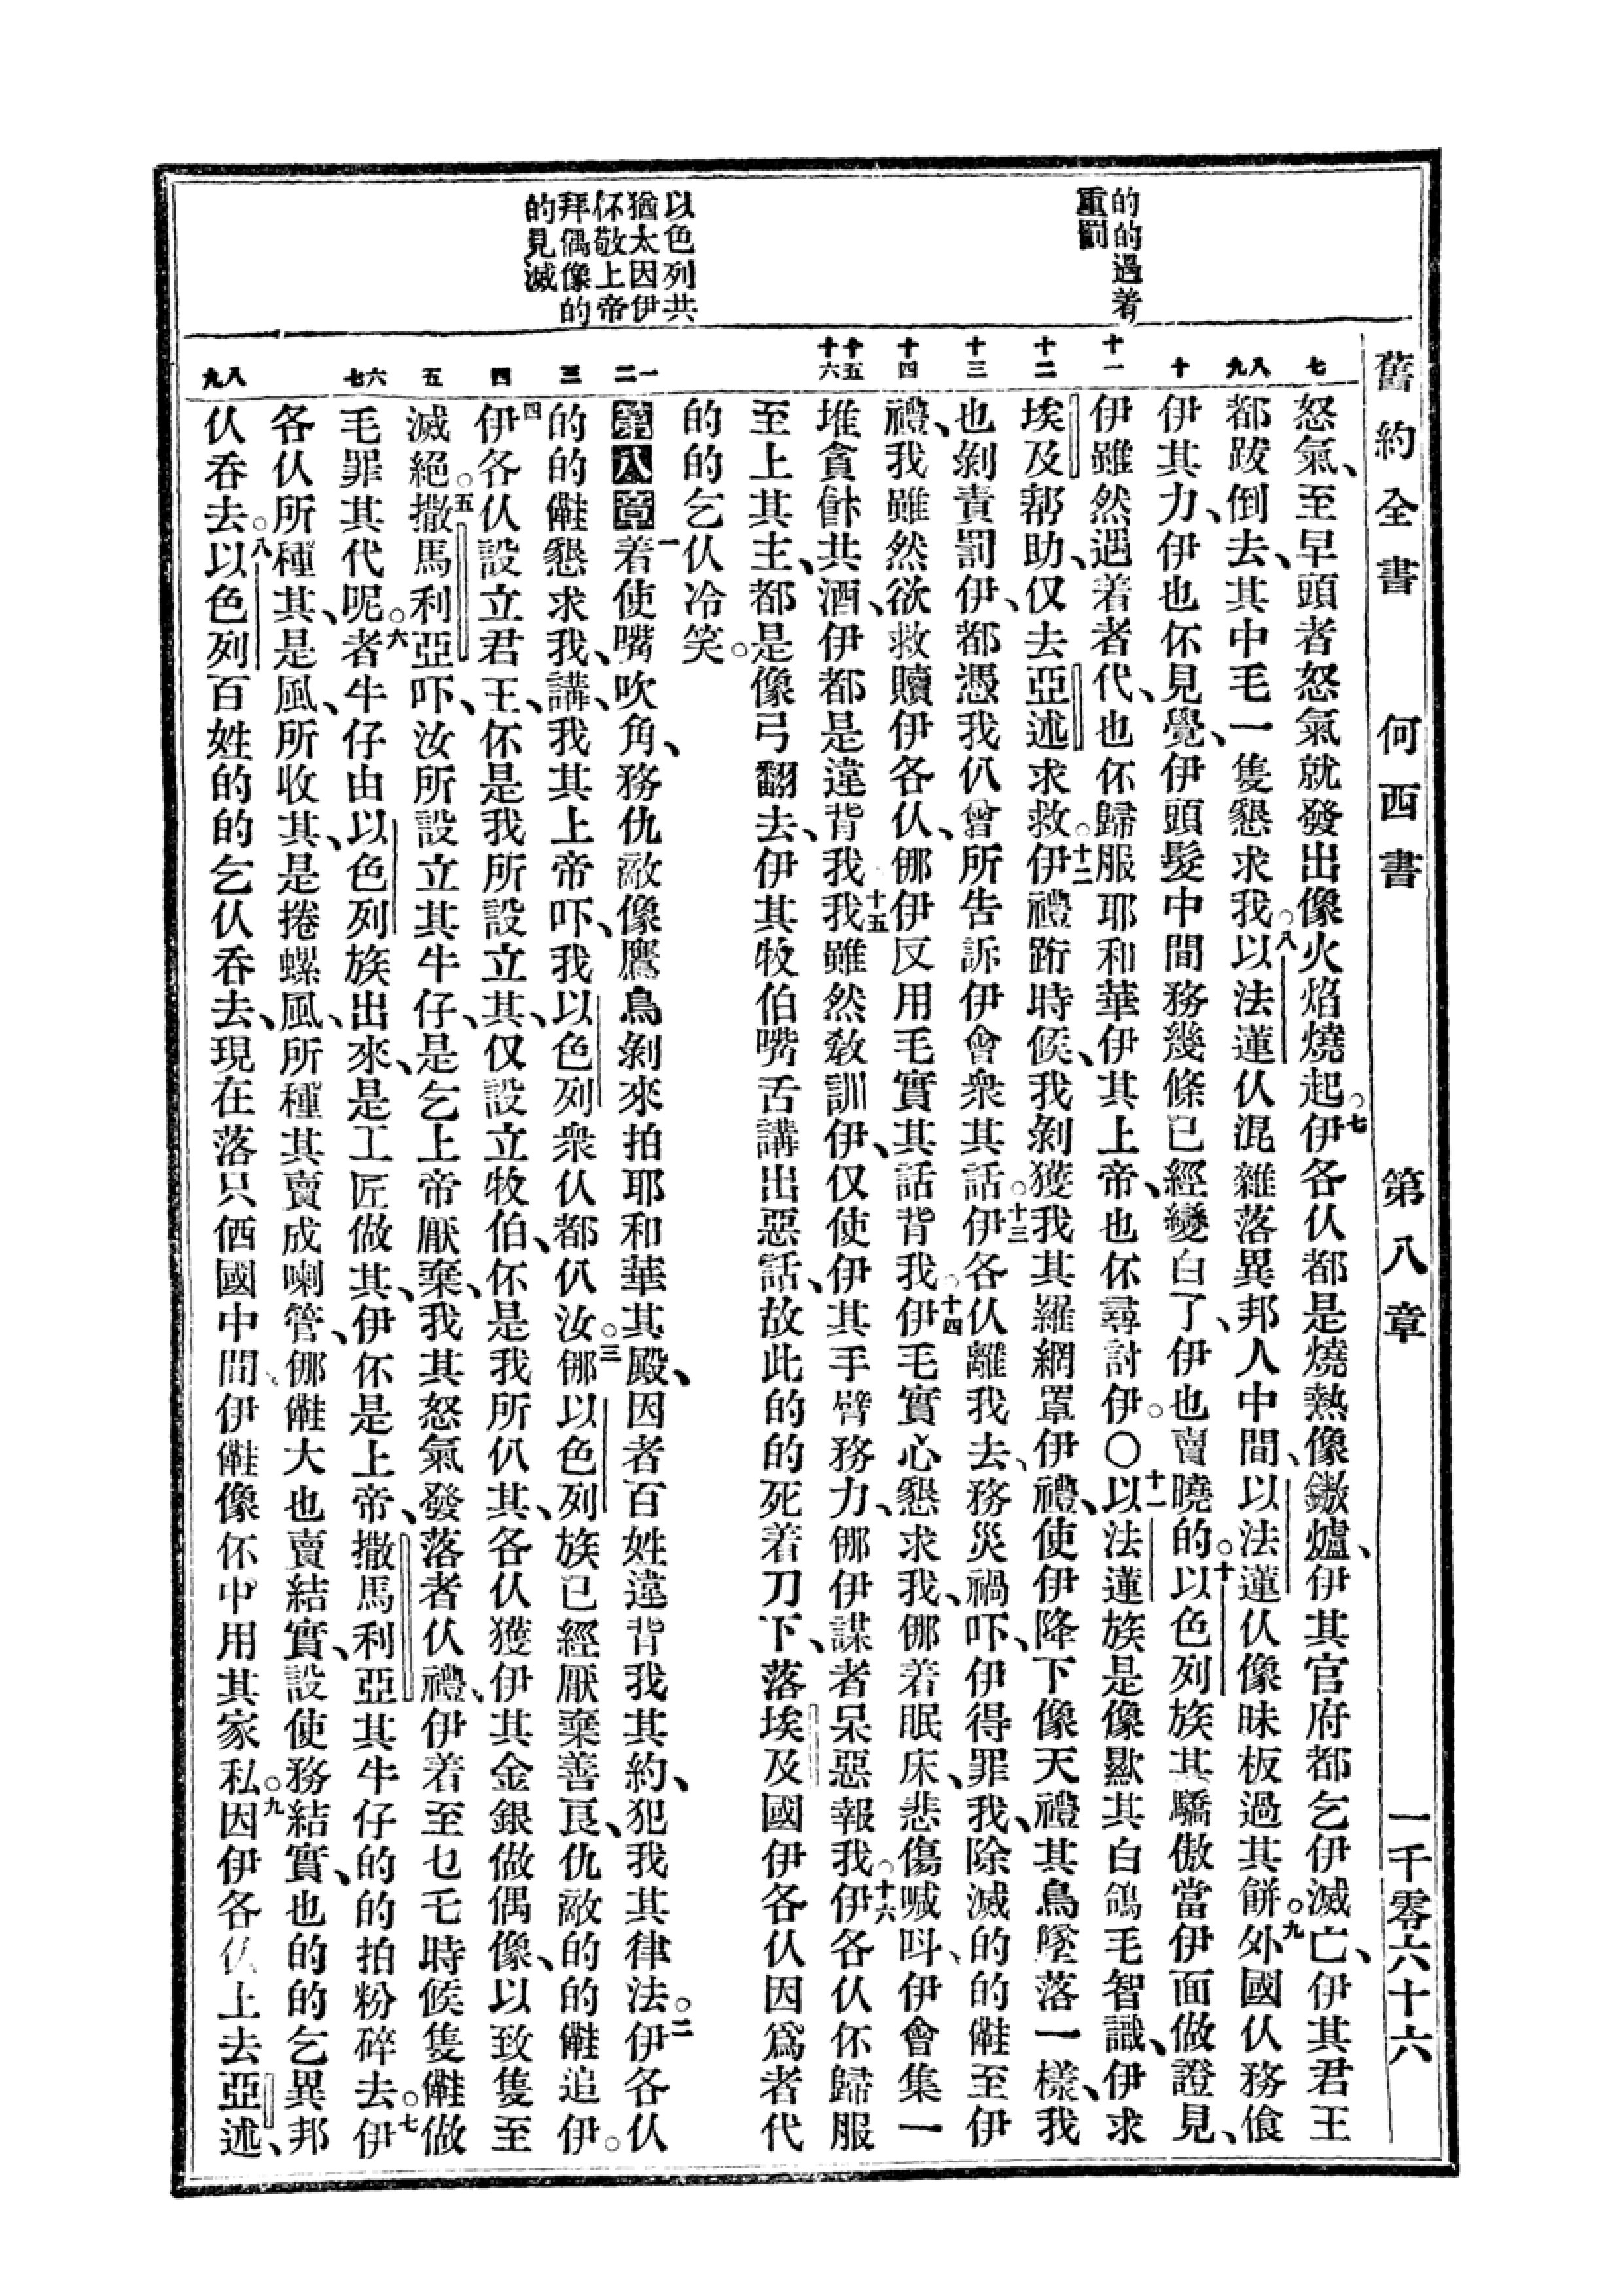 舊約全書　何西書　第八章　一千零六十六
的的過着
重罰
以色列共
猶太因伊
伓敬上帝
拜偶像的
的見滅
七
怒氣、至早頭者怒氣就發出像火焰燒起。七伊各仈都是燒熱像鏾爐、伊其官府都乞伊滅亡、伊其君王
八 九
都跋倒去、其中毛一隻懇求我。八以法蓮仈混雜落異邦人中間、以法蓮仈像昧板過其餅。九外國仈務飡
十
伊其力、伊也伓見覺、伊頭髮中間務幾條已經變白了、伊也賣曉的。十以色列族其驕傲當伊面做證見、
十一
伊雖然遇着者代、也伓歸服耶和華伊其上帝、也伓尋討伊。〇十一以法蓮族是像歟其白鴿毛智識、伊求
十二
埃及幇助、仅去亞述求救。十二伊禮跨時候、我剝獲我其羅網罩伊禮、使伊降下像天禮其鳥墜落一樣、我
十三
也剝責罰伊、都憑我仈曾所告訴伊會衆其話。十三伊各仈離我去、務災禍吓、伊得罪我、除滅的的儺至伊
十四
禮、我雖然欲救贖伊各仈、哪伊反用毛實其話背我。十四伊毛實心懇求我、哪着眠床、悲傷喊呌、伊會集一
十五 十六
堆貪䬵共酒、伊都是違背我。十五我雖然敎訓伊、仅使伊其手臂務力、哪伊謀者呆惡報我。十六伊各仈伓歸服
至上其主、都是像弓翻去、伊其牧伯嘴舌講出惡話、故此的的死着刀下、落埃及國伊各仈因爲者代
的的乞仈冷笑。
一 二
第八章一着使嘴吹角、務仇敵像鷹鳥剝來拍耶和華其殿、因者百姓違背我其約、犯我其律法。二伊各仈
三
的的儺懇求我、講、我其上帝吓、我以色列衆仈都仈汝。三哪以色列族已經厭棄善良、仇敵的的儺追伊。
四
四伊各仈設立君王、伓是我所設立其、仅設立牧伯、伓是我所仈其、各仈獲伊其金銀做偶像、以致隻至
五
滅絕。五撒馬利亞吓、汝所設立其牛仔、是乞上帝厭棄、我其怒氣發落者仈禮、伊着至乜乇時候隻儺做
六 七
毛罪其代呢。六者牛仔由以色列族出來、是工匠做其、伊伓是上帝、撒馬利亞其牛仔的的拍粉碎去。七伊
各仈所種其、是風、所收其、是捲螺風、所種其賣成喇管、哪儺大也賣結實、設使務結實、也的的乞異邦
八 九
仈呑去。八以色列百姓的的乞仈呑去、現在落只佰國中間、伊儺像伓中用其家私。九因伊各仈上去亞述、